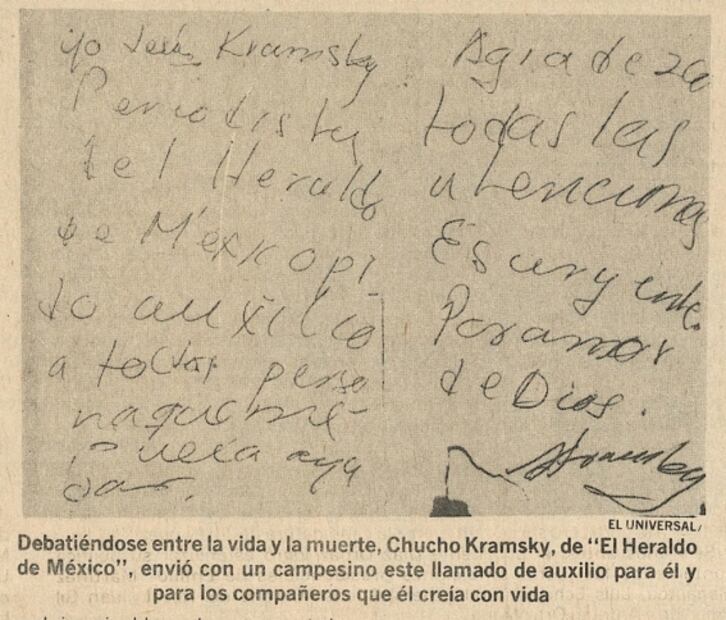 yo Jesús Kramsky
Periodista
del Heraldo
de México pi
do auxilio
a toda perso
na que me
pueda ayu
dar.
Agradezco
todas las
atenciones
Es urgente.
Por amor
de Dios.
Kramsky
EL UNIVERSAL/
Debatiéndose entre la vida y la muerte, Chucho Kramsky, de "El Heraldo
de México", envió con un campesino este llamado de auxilio para él y
para los compañeros que él creía con vida